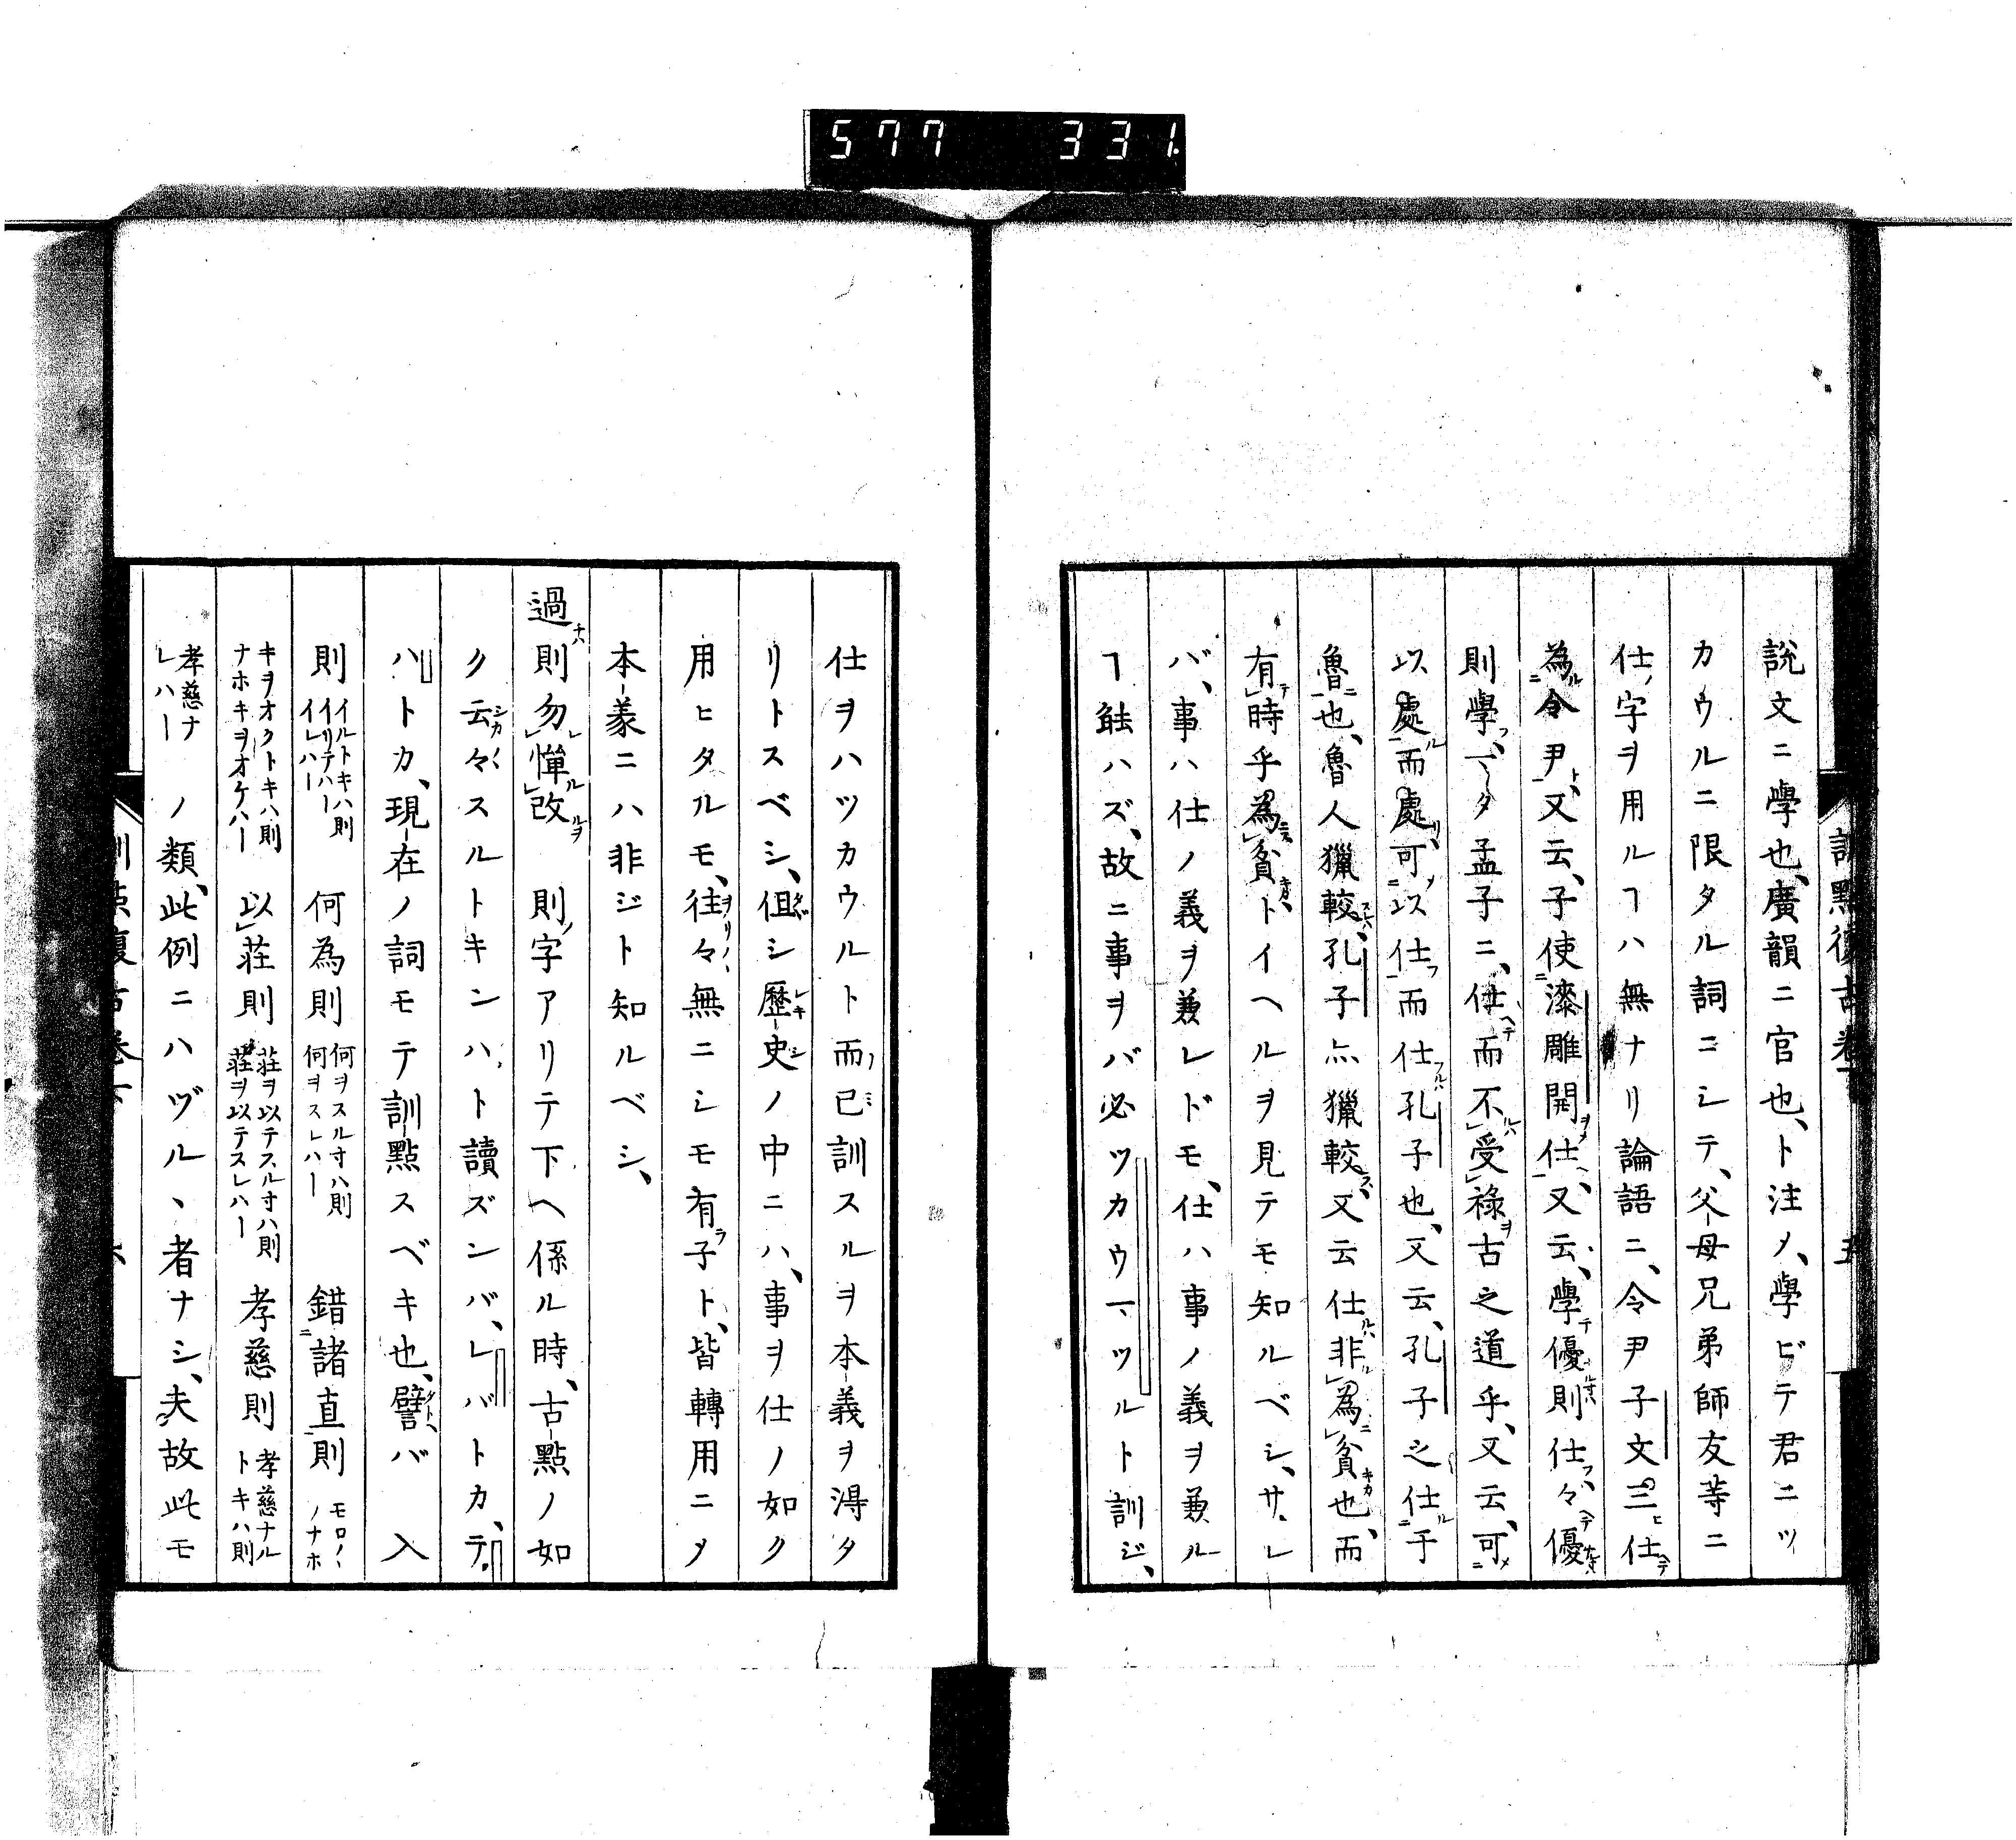 577 331
説文ニ學也、廣韻ニ官也、ト注〆、學ビテ君ニツ
カウルニ限タル詞ニシテ、父母兄弟師友等ニ
仕ノ字ヲ用ルヿハ無ナリ論語ニ、令尹子文三仕
為令尹又云、子使漆雕開仕、又云、學優則仕々優
則學、マタ孟子ニ、仕而不受禄古之道乎、又云、可
以處而處、可以仕而仕孔子也、又云、孔子之仕于
魯也、魯人獵較、孔子亦獵較、又云仕非為貧也、而
有時乎為貧、トイヘルヲ見テモ知ルベシ、サレ
バ、事ハ仕ノ義ヲ兼レドモ、仕ハ事ノ義ヲ兼ル
ヿ能ハズ、故ニ事ヲバ必ツカウマツルト訓ジ、
仕ヲハツカウルト而已訓スルヲ本義ヲ得タ
リトスベシ、但シ歴史ノ中ニハ、事ヲ仕ノ如ク
用ヒタルモ、往々無ニシモ有子ト、皆轉用ニ〆
本義ニハ非ジト知ルベシ、
過則勿憚改 則ノ字アリテ下ヘ係ル時、古點ノ如
ク云々スルトキンハ、ト讀ズンバ、レバトカ、テ
ハトカ、現在ノ詞モテ訓點スベキ也、譬バ 入
則 イルトキハ則 イリテハー イレハー 何為則 何ヲスル寸ハ則 何ヲスレハー 錯諸直則 モロ〱ノナホ
キヲオクトキハ則 ナホキヲオケハー 以莊則 莊ヲ以テスル寸ハ則 莊ヲ以テスレハー 孝慈則 孝慈ナルトキハ則
孝慈ナレハー ノ類、此例ニハヅルヽ者ナシ、夫故此モ